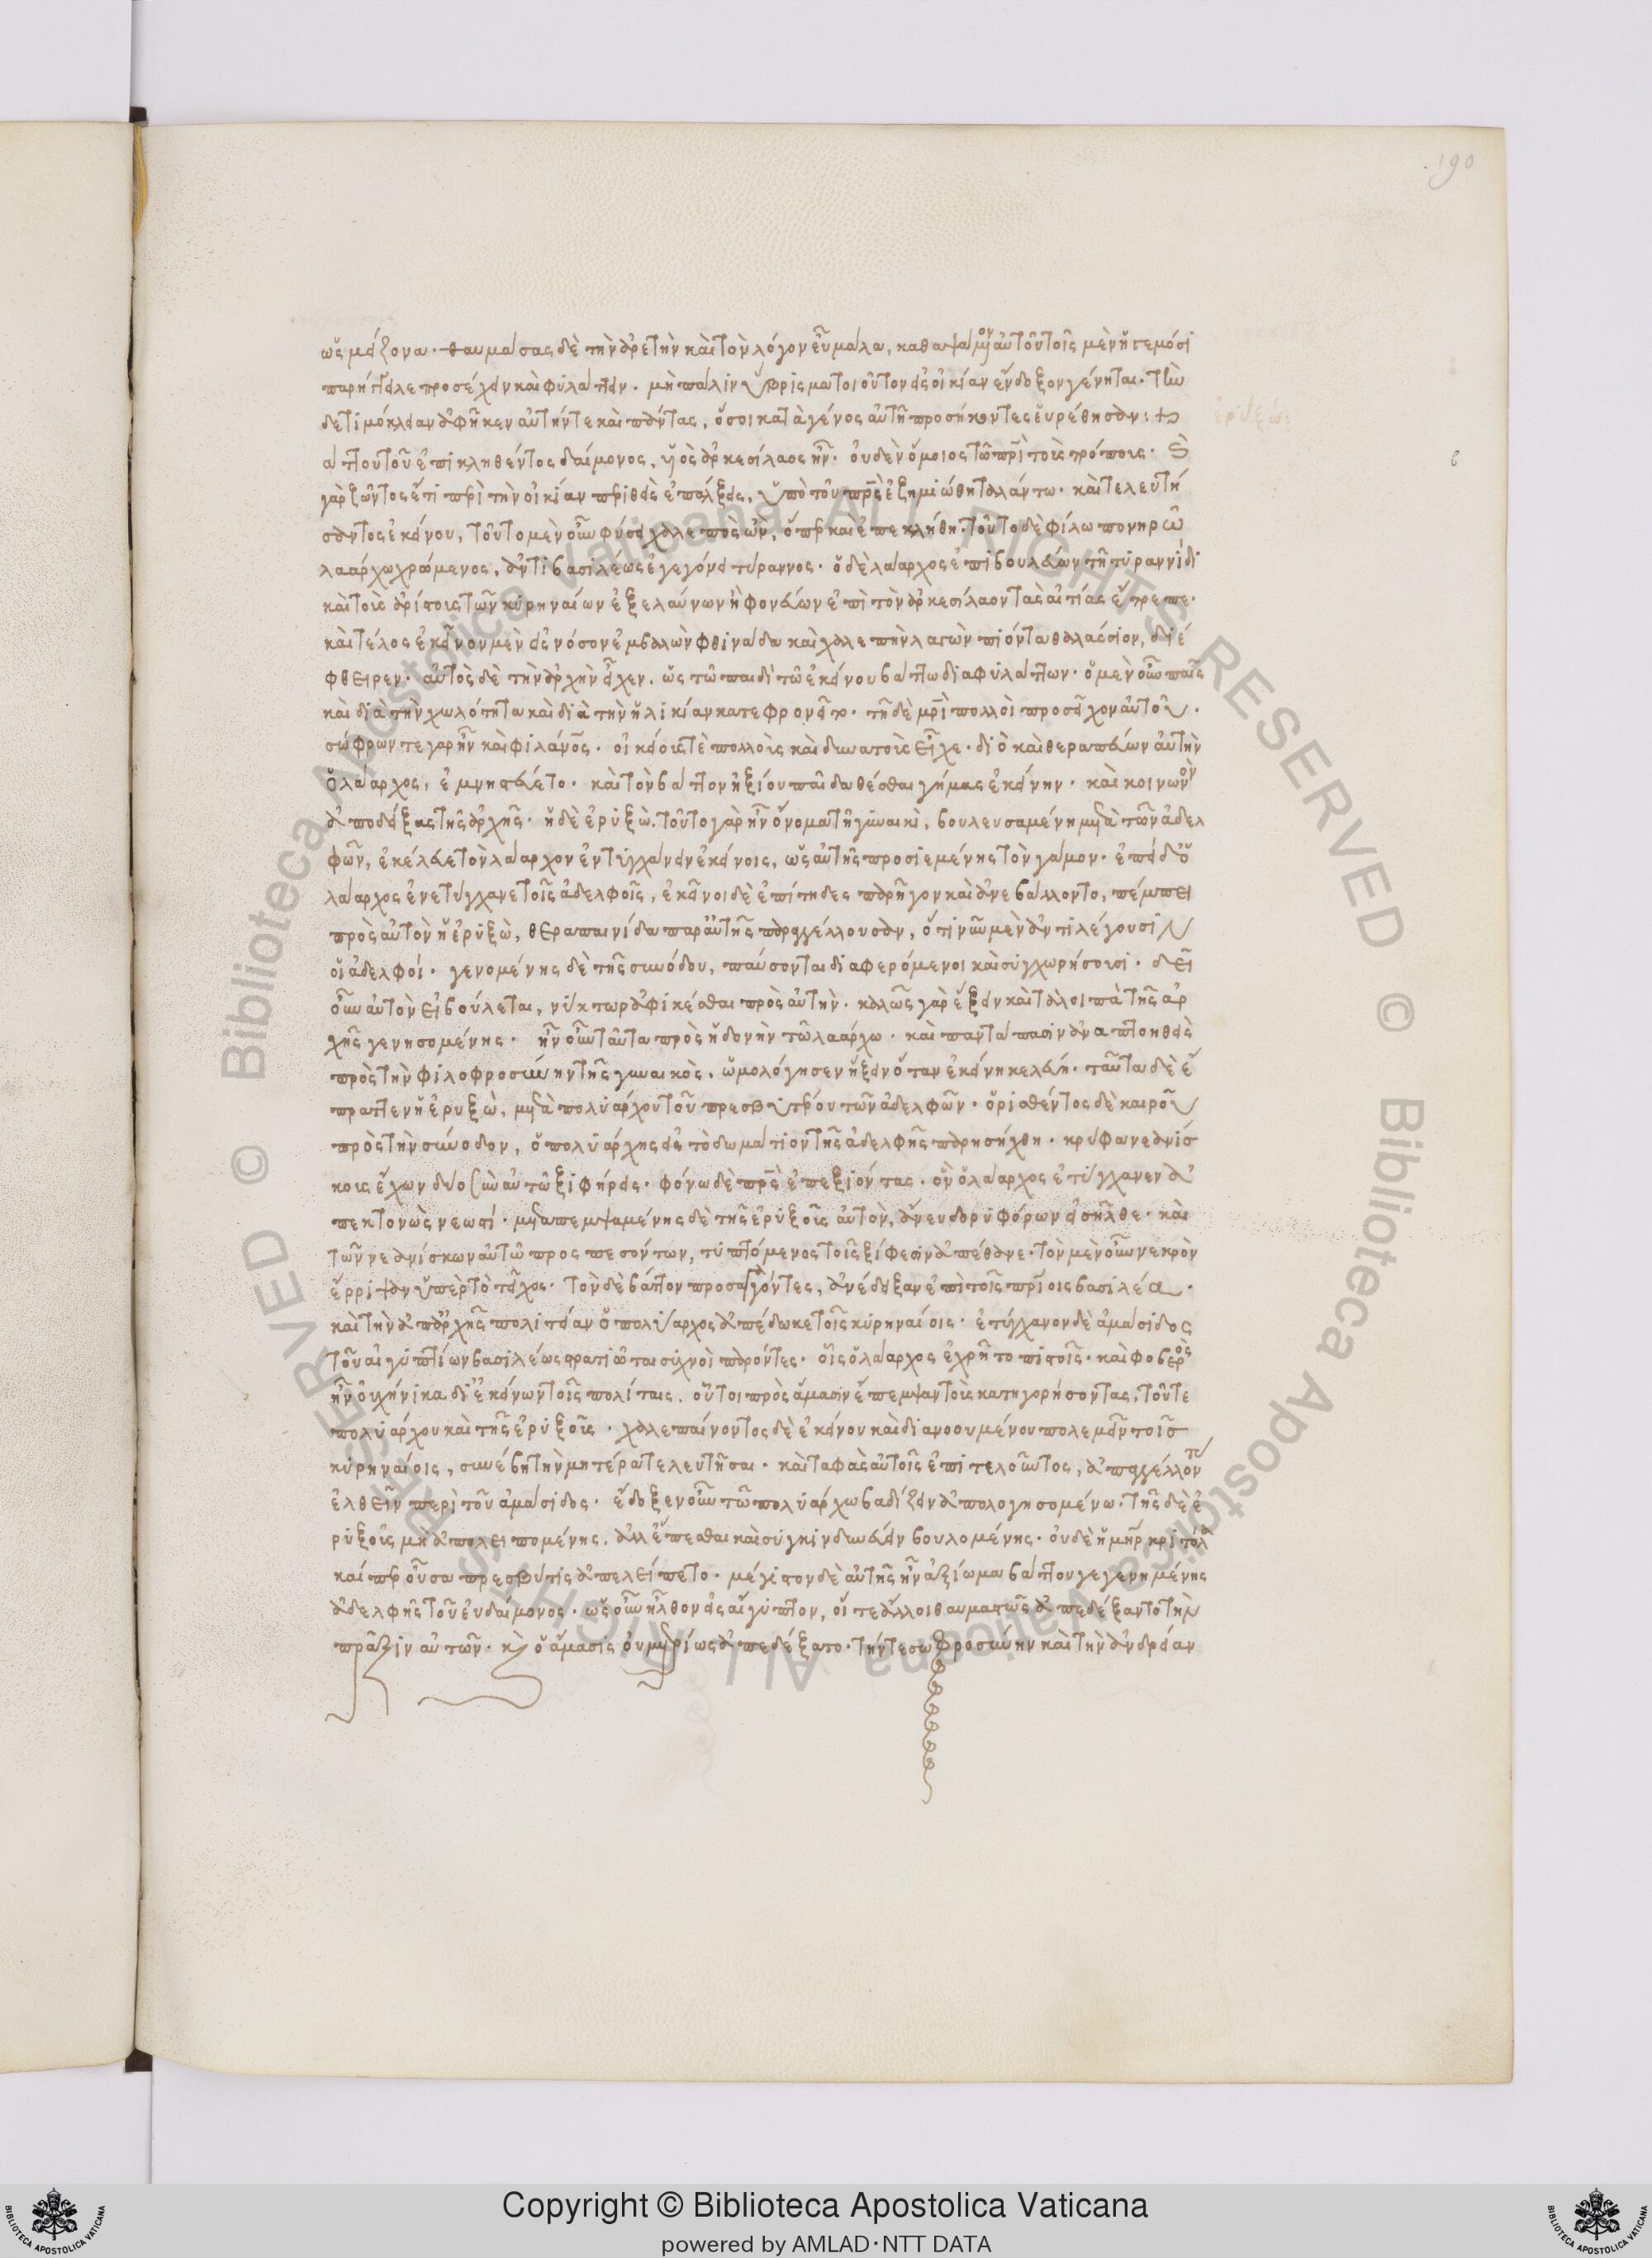 190
ὡς μείζονα. θαυμάσας δὲ τὴν ἀρετὴν καὶ τὸν λόγον εὖ μάλα, καθαψάμενος αὐτοῦ τοῖς μὲν ἡγεμόσι
παρήγγειλε προσέχειν καὶ φυλάττειν. μὴ πάλιν ὕβρισμα τοιοῦτον εἰς οἰκίαν ἔνδοξον γένηται. τὴν
δὲ τιμόκλειαν ἀφῆκεν αὐτήν τε καὶ πάντας, ὅσοι κατὰ γένος αὐτῇ προσήκοντες εὑρέθησαν:
ἐρυξώ:
βάττου τοῦ ἐπικληθέντος δαίμονος, υἱὸς ἀρκεσίλαος ἦν. οὐδὲν ὅμοιος τῷ πατρὶ τοὺς τρόπους. καὶ
γὰρ ζῶντος ἔτι περὶ τὴν οἰκίαν περιθεὶς ἐπάλξεις, ὑπὸ τοῦ πατρὸς ἐζημιώθη ταλάντω. καὶ τελευτή
σαντος ἐκείνου, τοῦτο μὲν οὖν φύσει χαλεπὸς ὤν, ὅπερ καὶ ἐπεκλήθη. τοῦτο δὲ φίλω πονηρῶ
λαάρχω χρώμενος, ἀντὶ βασιλέως ἐγεγόνει τύραννος. ὁ δὲ λάαρχος ἐπιβουλεύων τῇ τυραννίδι
καὶ τοὺς ἀρίστους τῶν κυρηναίων ἐξελαύνων ἢ φονεύων ἐπὶ τὸν ἀρκεσίλαον τὰς αἰτίας ἔτρεπε.
καὶ τέλος ἐκεῖνον μὲν εἰς νόσον ἐμβαλὼν φθινάδα καὶ χαλεπὴν λαγὼν πιόντα θαλάσσιον, διέ
φθειρεν. αὐτὸς δὲ τὴν ἀρχὴν εἶχεν. ὡς τῷ παιδὶ τῷ ἐκείνου βάττω διαφυλάττων. ὁ μὲν οὖν παῖς
καὶ διὰ τὴν χωλότητα καὶ διὰ τὴν ἡλικίαν κατεφρονεῖτο. τῇ δὲ μητρὶ πολλοὶ προσεῖχον αὐτοῦ.
σώφρων τε γὰρ ἦν καὶ φιλάνθρωπος. οἰκείους τε πολλοὺς καὶ δυνατοὺς εἶχε. διὸ καὶ θεραπεύων αὐτὴν
ὁ λάαρχος, ἐμνηστεύετο. καὶ τὸν βάττον ἠξίου παῖδα θέσθαι γήμας ἐκείνην. καὶ κοινωνὸν
ἀποδείξας τῆς ἀρχῆς. ἡ δὲ ἐρυξὼ. τοῦτο γὰρ ἦν ὄνομα τῇ γυναικί, βουλευσαμένη μετὰ τῶν ἀδελ
φῶν, ἐκέλευε τὸν λάαρχον ἐντυγχάνειν ἐκείνοις, ὡς αὐτῆς προσιεμένης τὸν γάμον. ἐπεὶ δ' ὁ
λάαρχος ἐνετύγχανε τοῖς ἀδελφοῖς, ἐκεῖνοι δὲ ἐπίτηδες παρῆγον καὶ ἀνεβάλλοντο, πέμπει
πρὸς αὐτὸν ἡ ἐρυξὼ, θεραπαινίδα παρ' αὐτῆς παραγγέλλουσαν, ὅτι νῦν μὲν ἀντιλέγουσιν
οἱ ἀδελφοί. γενομένης δὲ τῆς συνόδου, παύσονται διαφερόμενοι καὶ συγχωρήσουσι. δεῖ
οὖν αὐτὸν εἰ βούλεται, νύκτωρ ἀφικέσθαι πρὸς αὐτήν. καλῶς γὰρ ἕξειν καὶ τἄλοιπὰ τῆς ἀρ
χῆς γενησομένης. ἦν οὖν ταῦτα πρὸς ἡδονὴν τῷ λαάρχω. καὶ παντάπασιν ἀναπτοηθεὶς
πρὸς τὴν φιλοφροσύνην τῆς γυναικὸς. ὡμολόγησεν ἥξειν ὅταν ἐκείνη κελεύη. ταῦτα δὲ ἔ
πραττεν ἡ ἐρυξὼ, μετὰ πολυάρχου τοῦ πρεσβυτέρου τῶν ἀδελφῶν. ὁρισθέντος δὲ καιροῦ
πρὸς τὴν σύνοδον, ὁ πολυάρχης εἰς τὸ δωμάτιον τῆς ἀδελφῆς παρεισήχθη. κρύφα νεανίσ
κους ἔχων δύο σὺν αὐτῷ ξιφήρεις. φόνω δὲ πατρὸς ἐπεξιόντας. ὃν ὁ λάαρχος ἐτύγχανεν ἀ
πεκτονὼς νεωστί. μεταπεμψαμένης δὲ τῆς ἐρυξοῦς αὐτόν, ἄνευ δορυφόρων εἰσῆλθε. καὶ
τῶν νεανίσκων αὐτῷ προσπεσόντων, τυπτόμενος τοῖς ξίφεσιν ἀπέθανε. τὸν μὲν οὖν νεκρὸν
ἔρριψαν ὑπὲρ τὸ τεῖχος. τὸν δὲ βάττον προσαγαγόντες, ἀνέδειξαν ἐπὶ τοῖς πατρίοις βασιλέα.
καὶ τὴν ἀπ' ἀρχῆς πολιτείαν ὁ πολύαρχος ἀπέδωκε τοῖς κυρηναίοις. ἐτύγχανον δὲ ἀμάσιδος
τοῦ αἰγυπτίων βασιλέως στρατιῶται συχνοὶ παρόντες. οἷς ὁ λάαρχος ἐχρῆτο πιστοῖς. καὶ φοβερὸς
ἦν οὐχ ἥκιστα δι' ἐκείνων τοῖς πολίταις. οὗτοι πρὸς ἄμασιν ἔπεμψαν τοὺς κατηγορήσοντας, τοῦ τε
πολυάρχου καὶ τῆς ἐρυξοῦς. χαλεπαίνοντος δὲ ἐκείνου καὶ διανοουμένου πολεμεῖν τοῖς
κυρηναίοις, συνέβη τὴν μητέρα τελευτῆσαι. καὶ ταφὰς αὐτοῖς ἐπιτελοῦντος, ἀπαγγέλλοντας
ἐλθεῖν περὶ τοῦ ἀμάσιδος. ἔδοξεν οὖν τῷ πολυάρχω βαδίζειν ἀπολογησομένω. τῆς δὲ ἐ
ρυξοῦς μὴ ἀπολειπομένης. ἀλλ' ἕπεσθαι καὶ συγκινδυνεύειν βουλομένης. οὐδὲ ἡ μήτηρ κριτόλα
καίπερ οὖσα πρεσβύτις ἀπελείπετο. μέγιστον δὲ αὐτῆς ἦν ἀξίωμα βάττου γεγενημένης
ἀδελφῆς τοῦ εὐδαίμονος. ὡς οὖν ἦλθον εἰς αἴγυπτον, οἵ τε ἄλλοι θαυμαστῶς ἀπεδέξαντο τὴν
πρᾶξιν αὐτῶν. καὶ ὁ ἄμασις οὐ μετρίως ἀπεδέξατο. τήν τε σωφροσύνην καὶ τὴν ἀνδρείαν
© Biblioteca Apostolica Vaticana ALL RIGHTS RESERVED
Copyright © Biblioteca Apostolica Vaticana
powered by AMLAD·NTT DATA
BIBLIOTECA APOSTOLICA VATICANA
BIBLIOTECA APOSTOLICA VATICANA